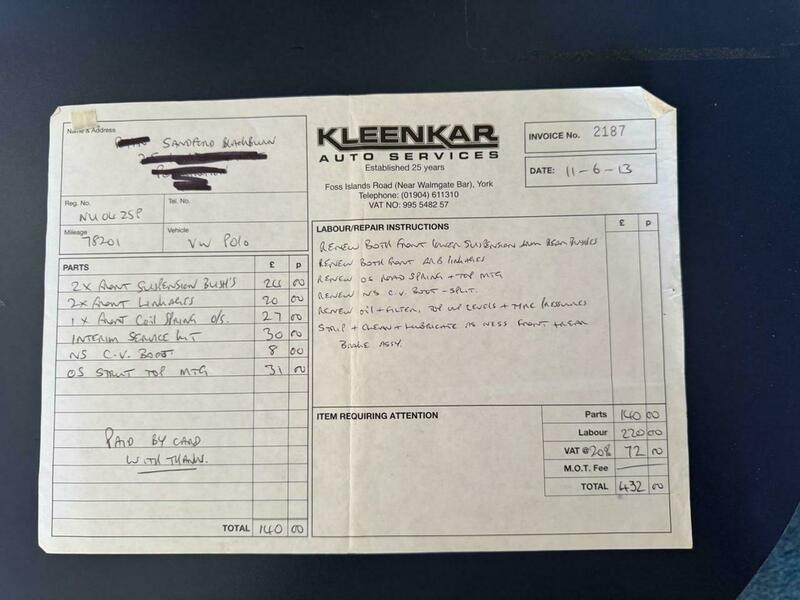 Name & Address
SANDFORD BLACKBURN
Reg. No.
NU04 2SP
Tel. No.
Mileage
78201
Vehicle
VW POLO
KLEENKAR
AUTO SERVICES
Established 25 years
Foss Islands Road (Near Walmgate Bar), York
Telephone: (01904) 611310
VAT NO: 995 5482 57
INVOICE No. 2187
DATE: 11-6-13
PARTS £ p
2X FRONT SUSPENSION BUSH'S 24 00
2X FRONT LINKAGES 20 00
1 X FRONT COIL SPRING O/S. 27 00
INTERIM SERVICE KIT 30 00
NS C.V. BOOT 8 00
OS STRUT TOP MTG 31 00
PAID BY CARD
WITH THANKS.
TOTAL 140 00
LABOUR/REPAIR INSTRUCTIONS £ p
RENEW BOTH FRONT LOWER SUSPENSION ARM REAR BUSHES
RENEW BOTH FRONT ARB LINKAGES
RENEW OS ROAD SPRING + TOP MTG
RENEW N/S C.V. BOOT - SPLIT.
RENEW OIL + FILTER, TOP UP LEVELS + TYRE PRESSURES
STRIP + CLEAN + LUBRICATE AS NESS FRONT + REAR
BRAKE ASSY.
ITEM REQUIRING ATTENTION
Parts 140 00
Labour 220 00
VAT @ 20% 72 00
M.O.T. Fee
TOTAL 432 00